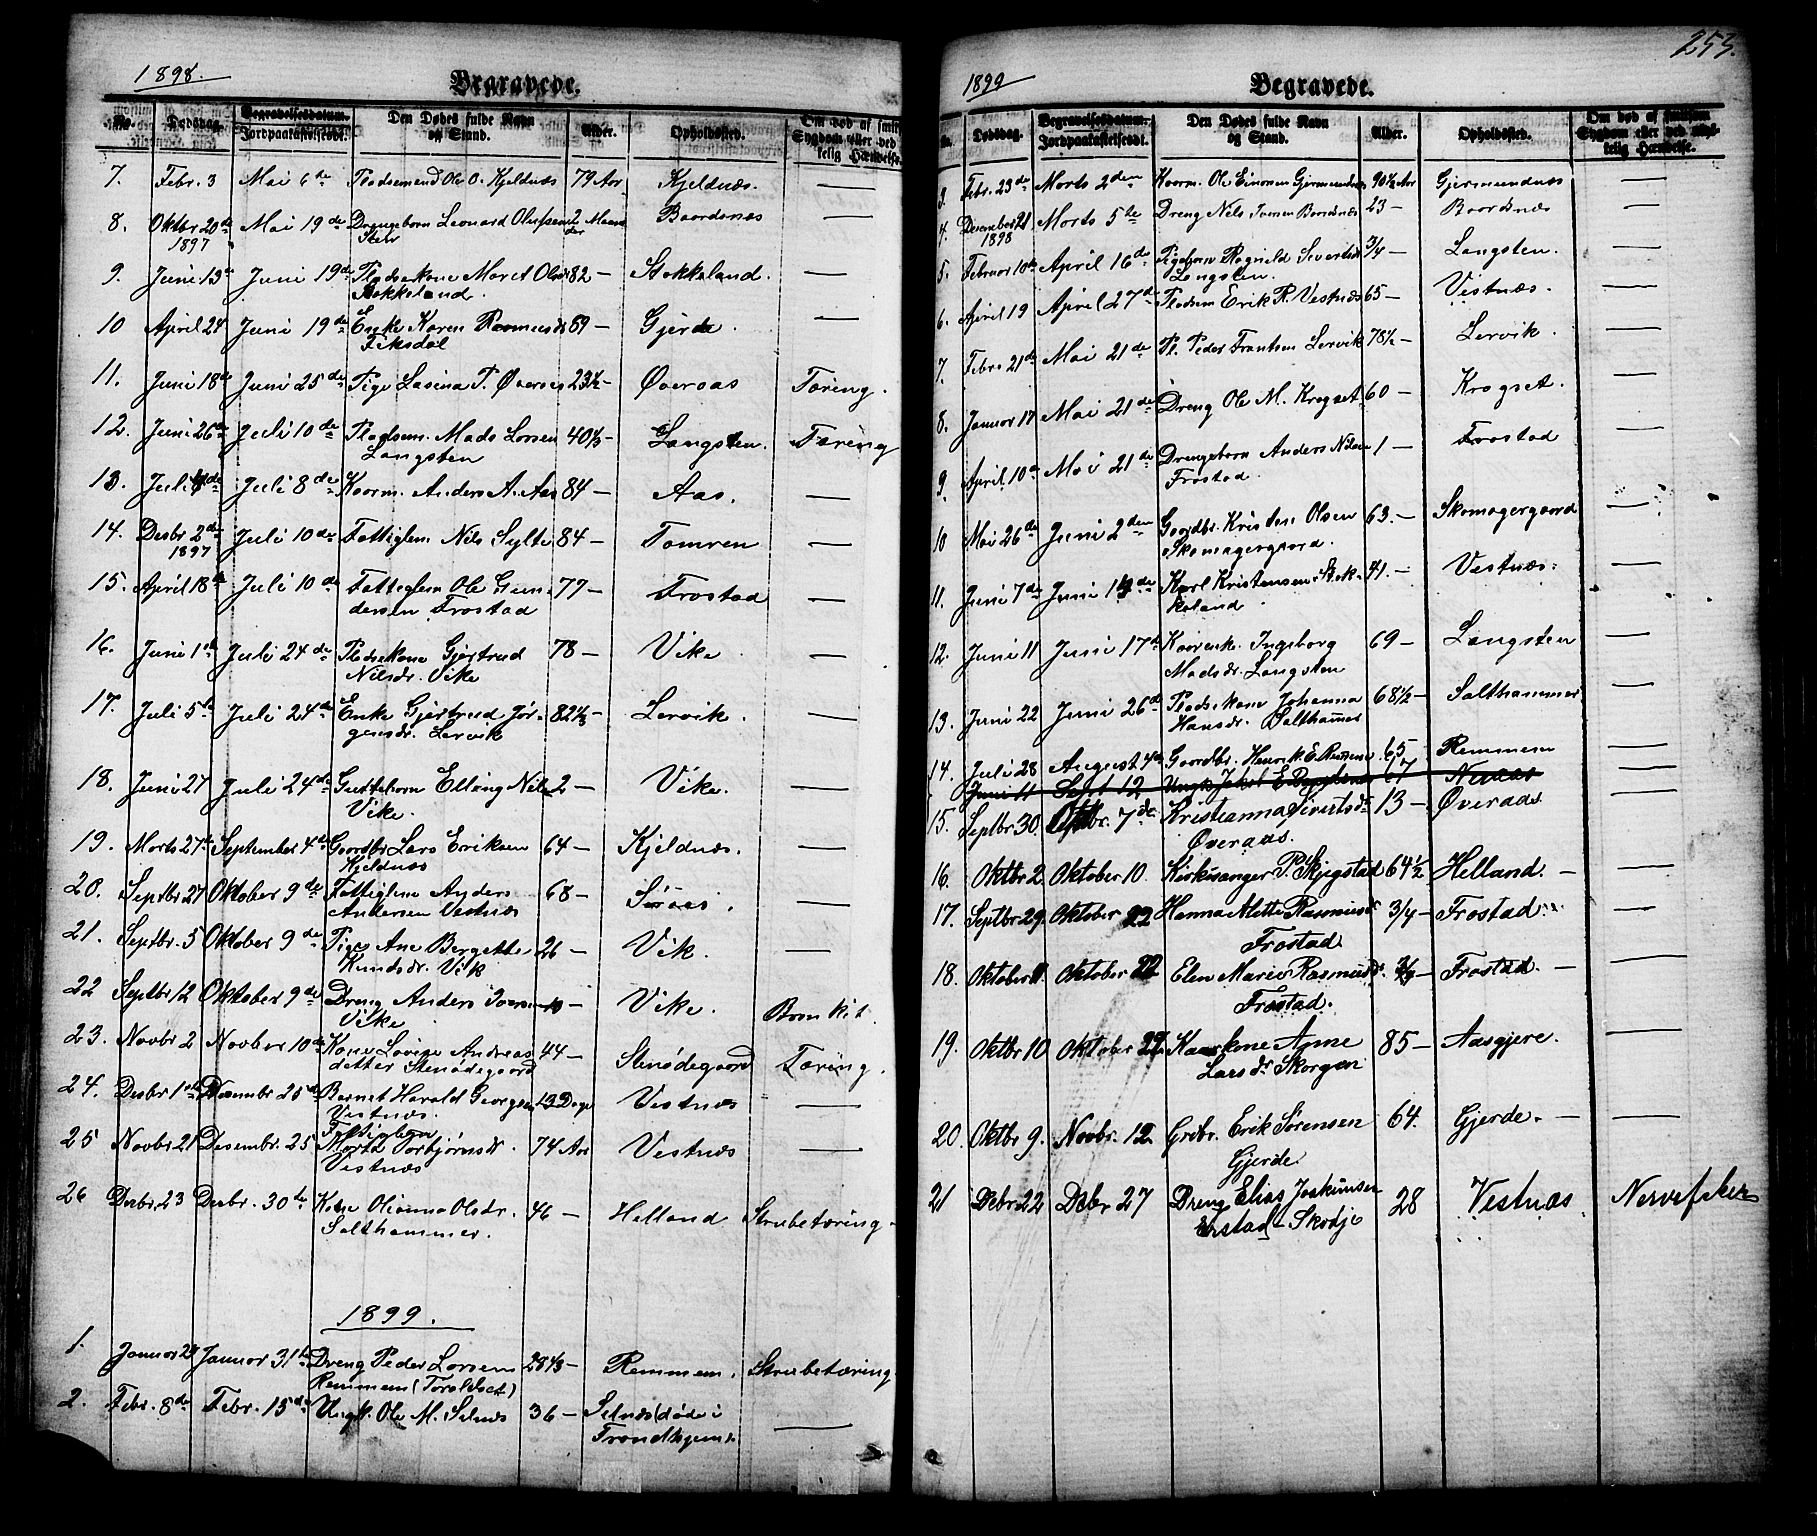 1898.
Begravede.
No. Dødsdag. Begravelsesdatum. Jordpaakastelsesdt. Den Dødes fulde Navn og Stand. Alder. Opholdssted. Om død af smitsom Sygdom eller ved ulykkelig Hændelse.
7. Febr. 3 Mai 6de Pladsemand Ole O. Kjeldnæs 79 Aar Kjeldnæs. —
8. Oktbr 20de 1897 Mai 19de Drengebarn Leonard Olufsen 2 Maaneder Baardsnæs —
9. Juni 13de Juni 19de Pladsekone Maret Olsdr 82 — Stokkeland. —
Stokkeland.
10 April 24 Juni 19de Enke Karen Rasmusdr 89 — Gjerde. —
Fiksdal
11. Juni 18de Juni 25de Pige Lasina P. Øveraas 23½ — Øveraas Tæring.
12. Juni 26de Juli 10de Pladsem. Mads Larsen 40½ — Langsten. Tæring
Langsten
13. Juli 4de Juli 8de Kaarm. Anders A. Aas 84 — Aas. —
14. Desbr 2de 1897 Juli 10de Fattiglem Nils Sylte 84 — Tomren —
15. April 18de Juli 10de Fattiglem Ole Gun- 77 — Frostad —
dersen Frostad
16. Juni 1ste Juli 24de Pladsekone Gjertrud 78 — Vike —
Nilsdr. Vike
17. Juli 5te Juli 24de Enke Gjertrud Jør- 82½ — Lervik. —
gensdr. Lervik
18. Juni 27 Juli 24de Guttebarn Elling Nils. 2 — Vike. —
Vike.
19. Marts 27de September 4de Gaardbr Lars Eriksen 64 — Kjeldnæs. —
Kjeldnæs
20. Septbr 27 Oktober 9de Fattiglem Anders 68 — —
Andersen Vestnæs
21. Septbr. 5 Oktober 9de Pige Ane Bergette 26 — Vik. —
Knudsdr. Vik
22 Septbr 12 Oktober 9de Dreng Anders Iversen 10 — Vike. Bronkit.
Vike
23. Novbr 2 Novber 10de Kone Lovise Andreas 44 — Stenødegaard Tæring.
datter Stenødegaard
24. Desbr 1ste Desembr 25de Bernet Harald Georgsen 13 Dage Vestnæs —
Vestnæs.
25 Novbr 21 Desembr. 25 Fattiglem Marta Torbjørnsdr. 74 Aar Vestnæs —
Vestnæs
26 Desbr. 23 Desbr. 30de Kone Olianna Olsdr. 46 — Helland Strubetæring —
Salthammer.
1899.
1. Januar 21 Januar 31te Dreng Peder Larsen 28⅓ — Remmem. Strubetæring
Remmem (Toraldset)
2. Febr. 8de Febr. 15de Ungk. Ole M. Selnæs 36 — Selnæs (døde i —
Trondhjem).
253.
1899
Begravede.
No. Dødsdag. Begravelsesdatum. Jordpaakastelsesdt. Den Dødes fulde Navn og Stand. Alder. Opholdssted. Om død af smitsom Sygdom eller ved ulykkelig Hændelse.
3. Febr. 23de Marts 2den Kaarm. Ole Einarsen Gjermundnæs 90½ Aar Gjermundnæs —
4. Desember 21 1898 Marts 5te Dreng Nils Iversen Baardsnæs 23 — Baardsnæs —
5. Februar 10de April 16de Pigebarn Ragnild Sivertsdr 3/4 — Langsten. —
Langsten.
6. April 19 April 27de Pladsm Erik R. Vestnæs 65 — Vestnæs. —
7. Febr. 21de Mai 21de Pl. Peder Frantsen Lervik 78½ — Lervik. —
8. Januar 17 Mai 21de Dreng Ole M. Krogset 60 — Krogset. —
9. April 10de Mai 21de Drengebarn Anders Nilsen 1 — Frostad —
Frostad.
10 Mai 26de Juni 2den Gaardbr. Kristen Olsen 63. — Skomagergaard —
Skomagergaard.
11. Juni 7de Juni 14de Karl Kristensen Stok- 41. — Vestnæs. —
keland
12. Juni 11 Juni 17de Kaarenke. Ingeborg 69 — Langsten —
Madsdr. Langsten
13. Juni 22 Juni 26de Pladsekone Johanna 68½ — Salthammer —
Hansdr. Salthammer
14. Juli 28 August 4de Gaardbr. Henrik E. Remmem 65 Remmem —
Juni 11 Sept 12 Ungk Jakob E. 67 Neraas —
15. Septbr 30 Oktbr. 7de Kristianna Sivertsdr 13 — Øveraas. —
Øveraas.
16. Oktbr 2 Oktober 10 Kirkesanger P. Skjegstad 64½ Helland. —
17. Septbr 29. Oktober 22 Hanna Mette Rasmusdr 3/4 — Frostad. —
Frostad
18. Oktober 11. Oktober 22 Elen Marie Rasmusdr. 3/4 — Frostad. —
Frostad.
19. Oktbr 10 Oktober 22 Kaarkone Anne 85 — Aasgjere. —
Larsdr Skorgen
20. Oktbr 9. Novbr. 12 Grdbr. Erik Sørensen 64. Gjerde. —
Gjerde
21 Debr 22 Debr 27 Dreng Elias Joakimsen 28 Vestnæs Nervefeber
Erstad — Skodje